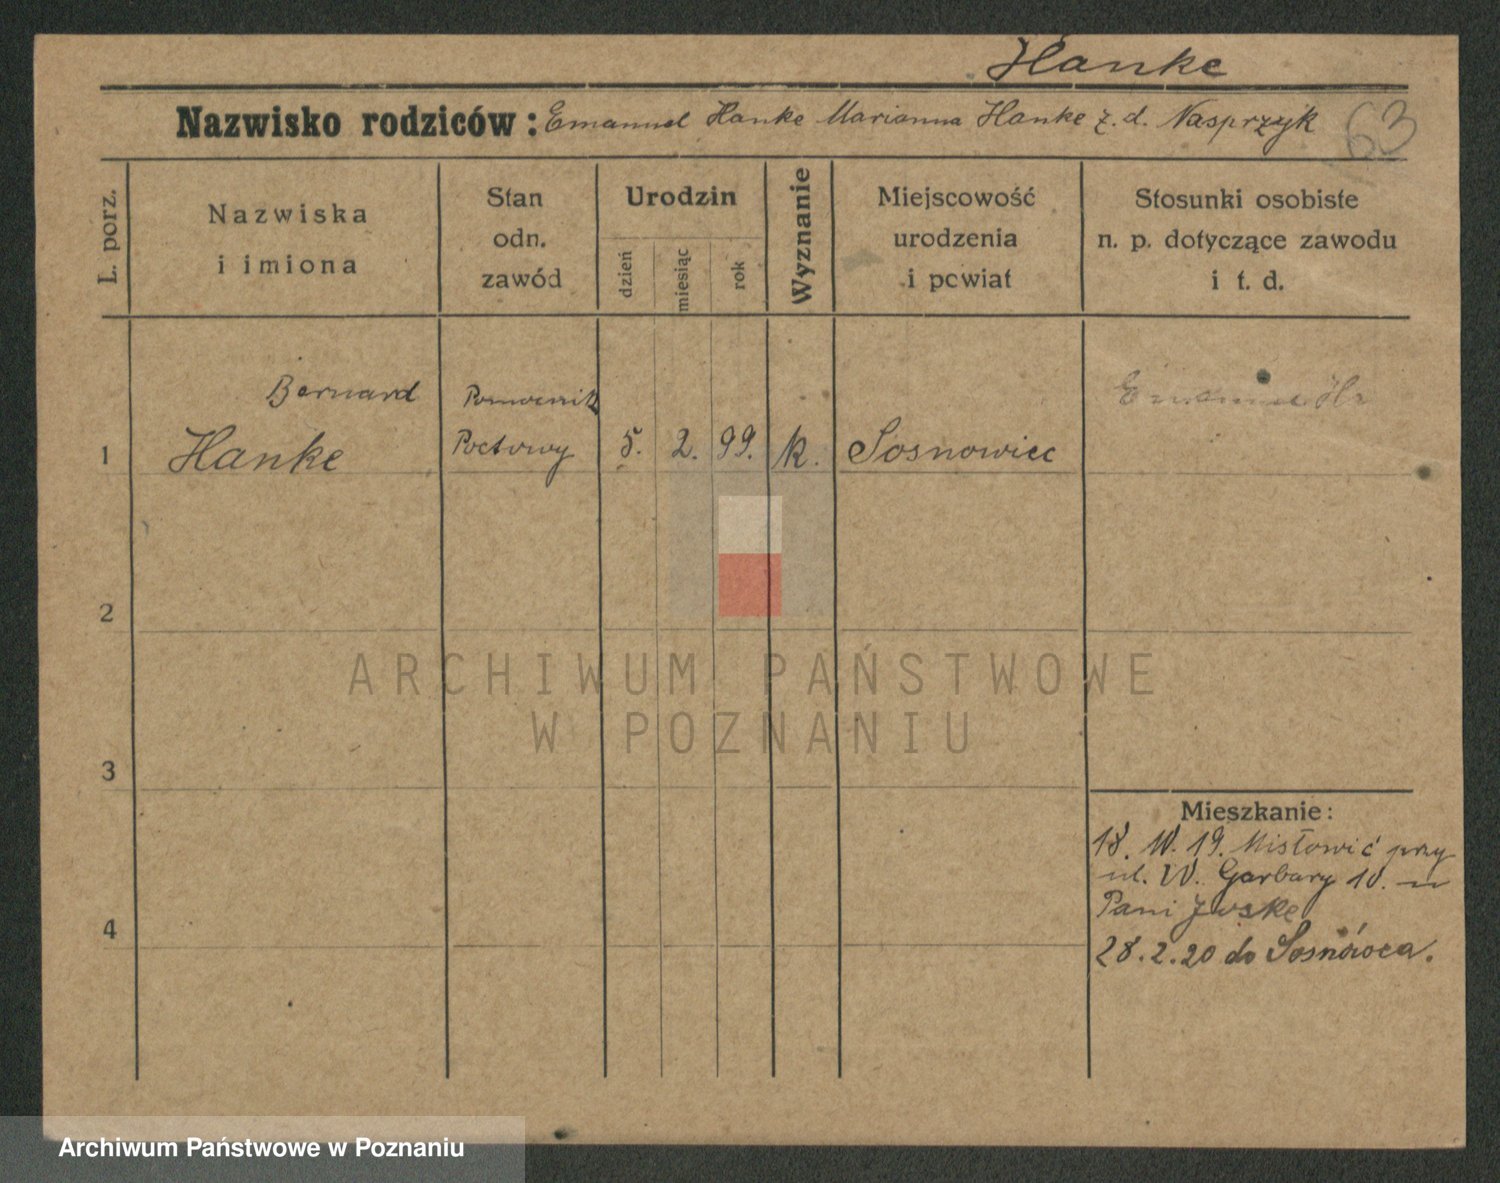 Hanke
Nazwisko rodziców: Emanuel Hanke Marianna Hanke z. d. Nasprzyk
63
L. porz.
Nazwiska
i imiona
Stan
odn.
zawód
Urodzin
dzień
miesiąc
rok
Wyznanie
Miejscowość
urodzenia
i powiat
Stosunki osobiste
n. p. dotyczące zawodu
i t. d.
1
Bernard
Hanke
Pomocnik
Poctowy
5. 2. 99. k. Sosnowiec
Emanuel
2
ARCHIWUM PAŃSTWOWE
W POZNANIU
3
4
Mieszkanie:
18. 19. Misłowić przy
ul. W. Garbary 10. u
Pani
28. 2. 20 do
Archiwum Państwowe w Poznaniu